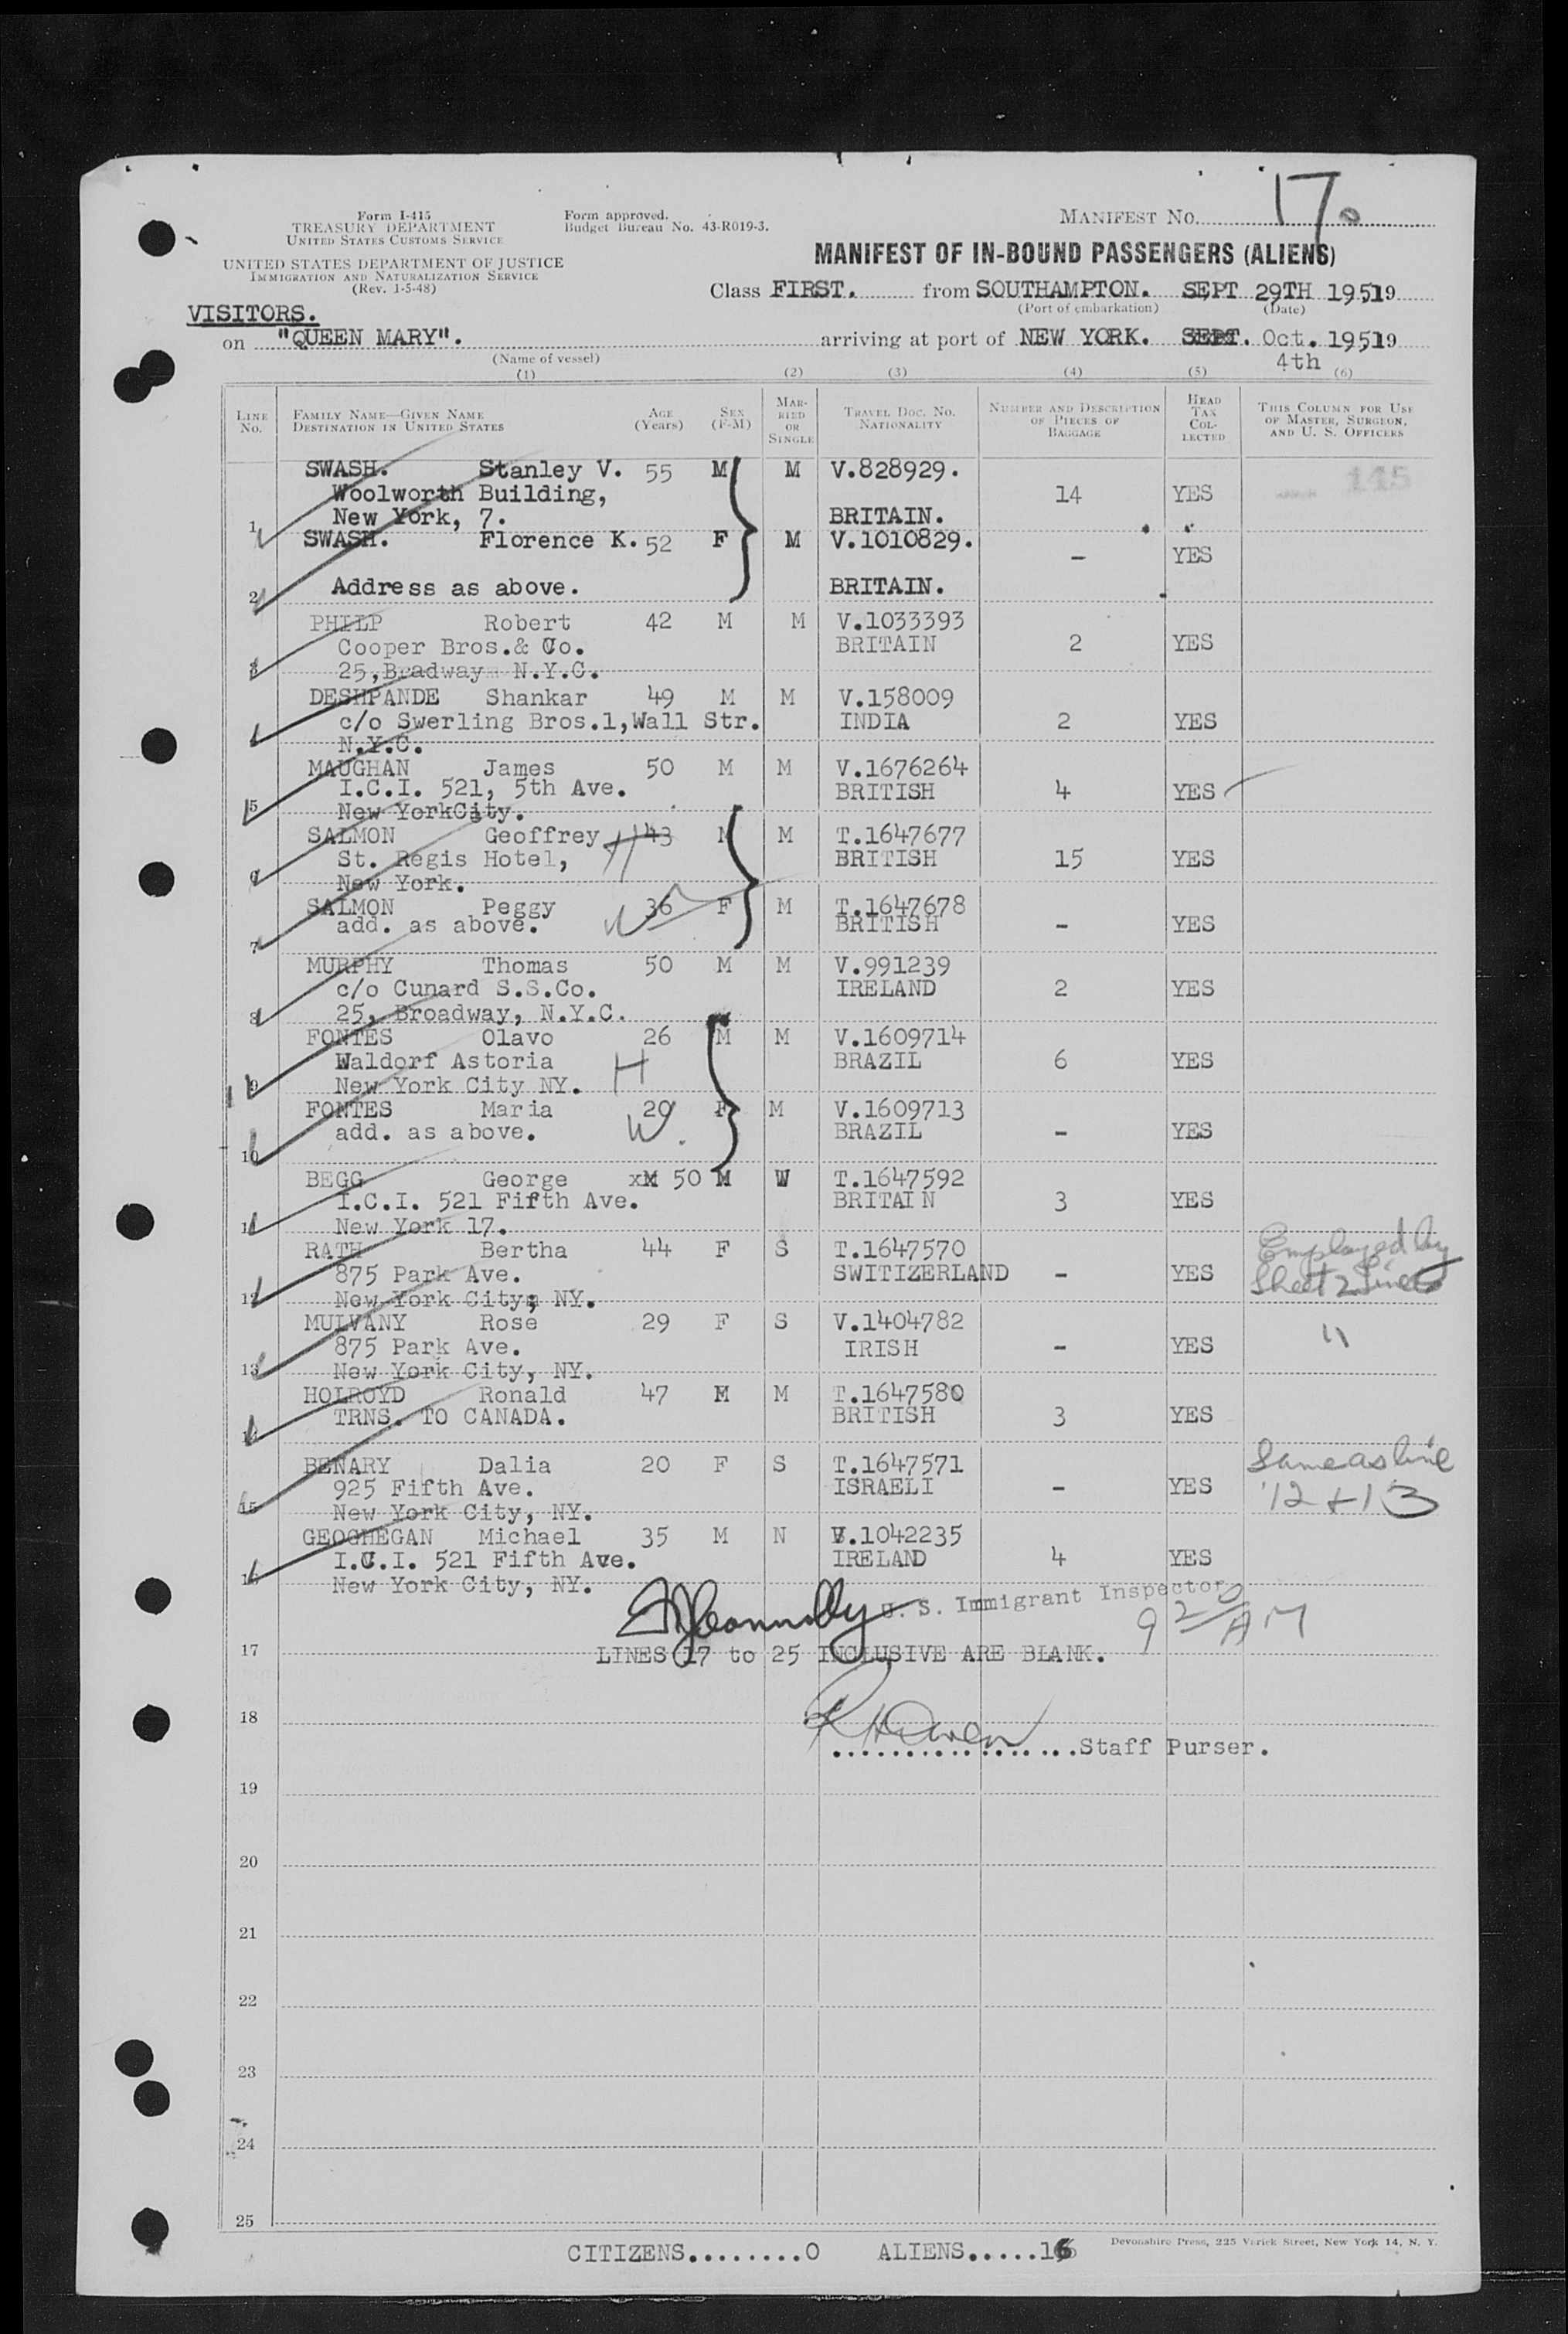 Form I-415
TREASURY DEPARTMENT
UNITED STATES CUSTOMS SERVICE
UNITED STATES DEPARTMENT OF JUSTICE
IMMIGRATION AND NATURALIZATION SERVICE
(Rev. 1-5-48)
Form approved.
Budget Bureau No. 43-R019-3.
MANIFEST NO. 17
MANIFEST OF IN-BOUND PASSENGERS (ALIENS)
Class FIRST. from SOUTHAMPTON. SEPT 29TH 19519
(Port of embarkation) (Date)
VISITORS.
on "QUEEN MARY". arriving at port of NEW YORK. SEPT. Oct. 19519
4th
(Name of vessel)
(1) (2) (3) (4) (5) (6)
LINE NO. FAMILY NAME—GIVEN NAME DESTINATION IN UNITED STATES AGE (Years) SEX (F-M) MARRIED OR SINGLE TRAVEL DOC. NO. NATIONALITY NUMBER AND DESCRIPTION OF PIECES OF BAGGAGE HEAD TAX COLLECTED THIS COLUMN FOR USE OF MASTER, SURGEON, AND U. S. OFFICERS
SWASH. Stanley V. 55 M M V.828929. 145
Woolworth Building, 14 YES
1 New York, 7. BRITAIN.
SWASH. Florence K. 52 F M V.1010829.
- YES
2 Address as above. BRITAIN.
PHILP Robert 42 M M V.1033393
Cooper Bros.& Co. BRITAIN 2 YES
3 25,Bradway- N.Y.C.
DESHPANDE Shankar 49 M M V.158009
c/o Swerling Bros.1,Wall Str. INDIA 2 YES
N.Y.C.
MAUGHAN James 50 M M V.1676264
I.C.I. 521, 5th Ave. BRITISH 4 YES
5 New YorkCity.
SALMON Geoffrey H 43 M M T.1647677
St. Regis Hotel, BRITISH 15 YES
6 New York.
SALMON Peggy W 36 F M T.1647678
add. as above. BRITISH - YES
7
MURPHY Thomas 50 M M V.991239
c/o Cunard S.S.Co. IRELAND 2 YES
8 25, Broadway, N.Y.C.
FONTES Olavo 26 M M V.1609714
Waldorf Astoria H BRAZIL 6 YES
9 New York City NY.
FONTES Maria 20 F M V.1609713
add. as above. W. BRAZIL - YES
10
BEGG George xM 50 M W T.1647592
I.C.I. 521 Fifth Ave. BRITAIN 3 YES
11 New York 17.
RATH Bertha 44 F S T.1647570 Employed by
875 Park Ave. SWITIZERLAND - YES Sheet 2 Line
12 New York City, NY.
MULVANY Rose 29 F S V.1404782
875 Park Ave. IRISH - YES "
13 New York City, NY.
HOLROYD Ronald 47 M M T.1647580
TRNS. TO CANADA. BRITISH 3 YES
14
BENARY Dalia 20 F S T.1647571 Same as line
925 Fifth Ave. ISRAELI - YES 12 + 13
15 New York City, NY.
GEOGHEGAN Michael 35 M N V.1042235
I.C.I. 521 Fifth Ave. IRELAND 4 YES
16 New York City, NY.
U. S. Immigrant Inspector 9 20 AM
17 LINES 17 to 25 INCLUSIVE ARE BLANK.
18
....................Staff Purser.
19
20
21
22
23
24
25
CITIZENS........0 ALIENS.....16
Devonshire Press, 225 Varick Street, New York 14, N. Y.